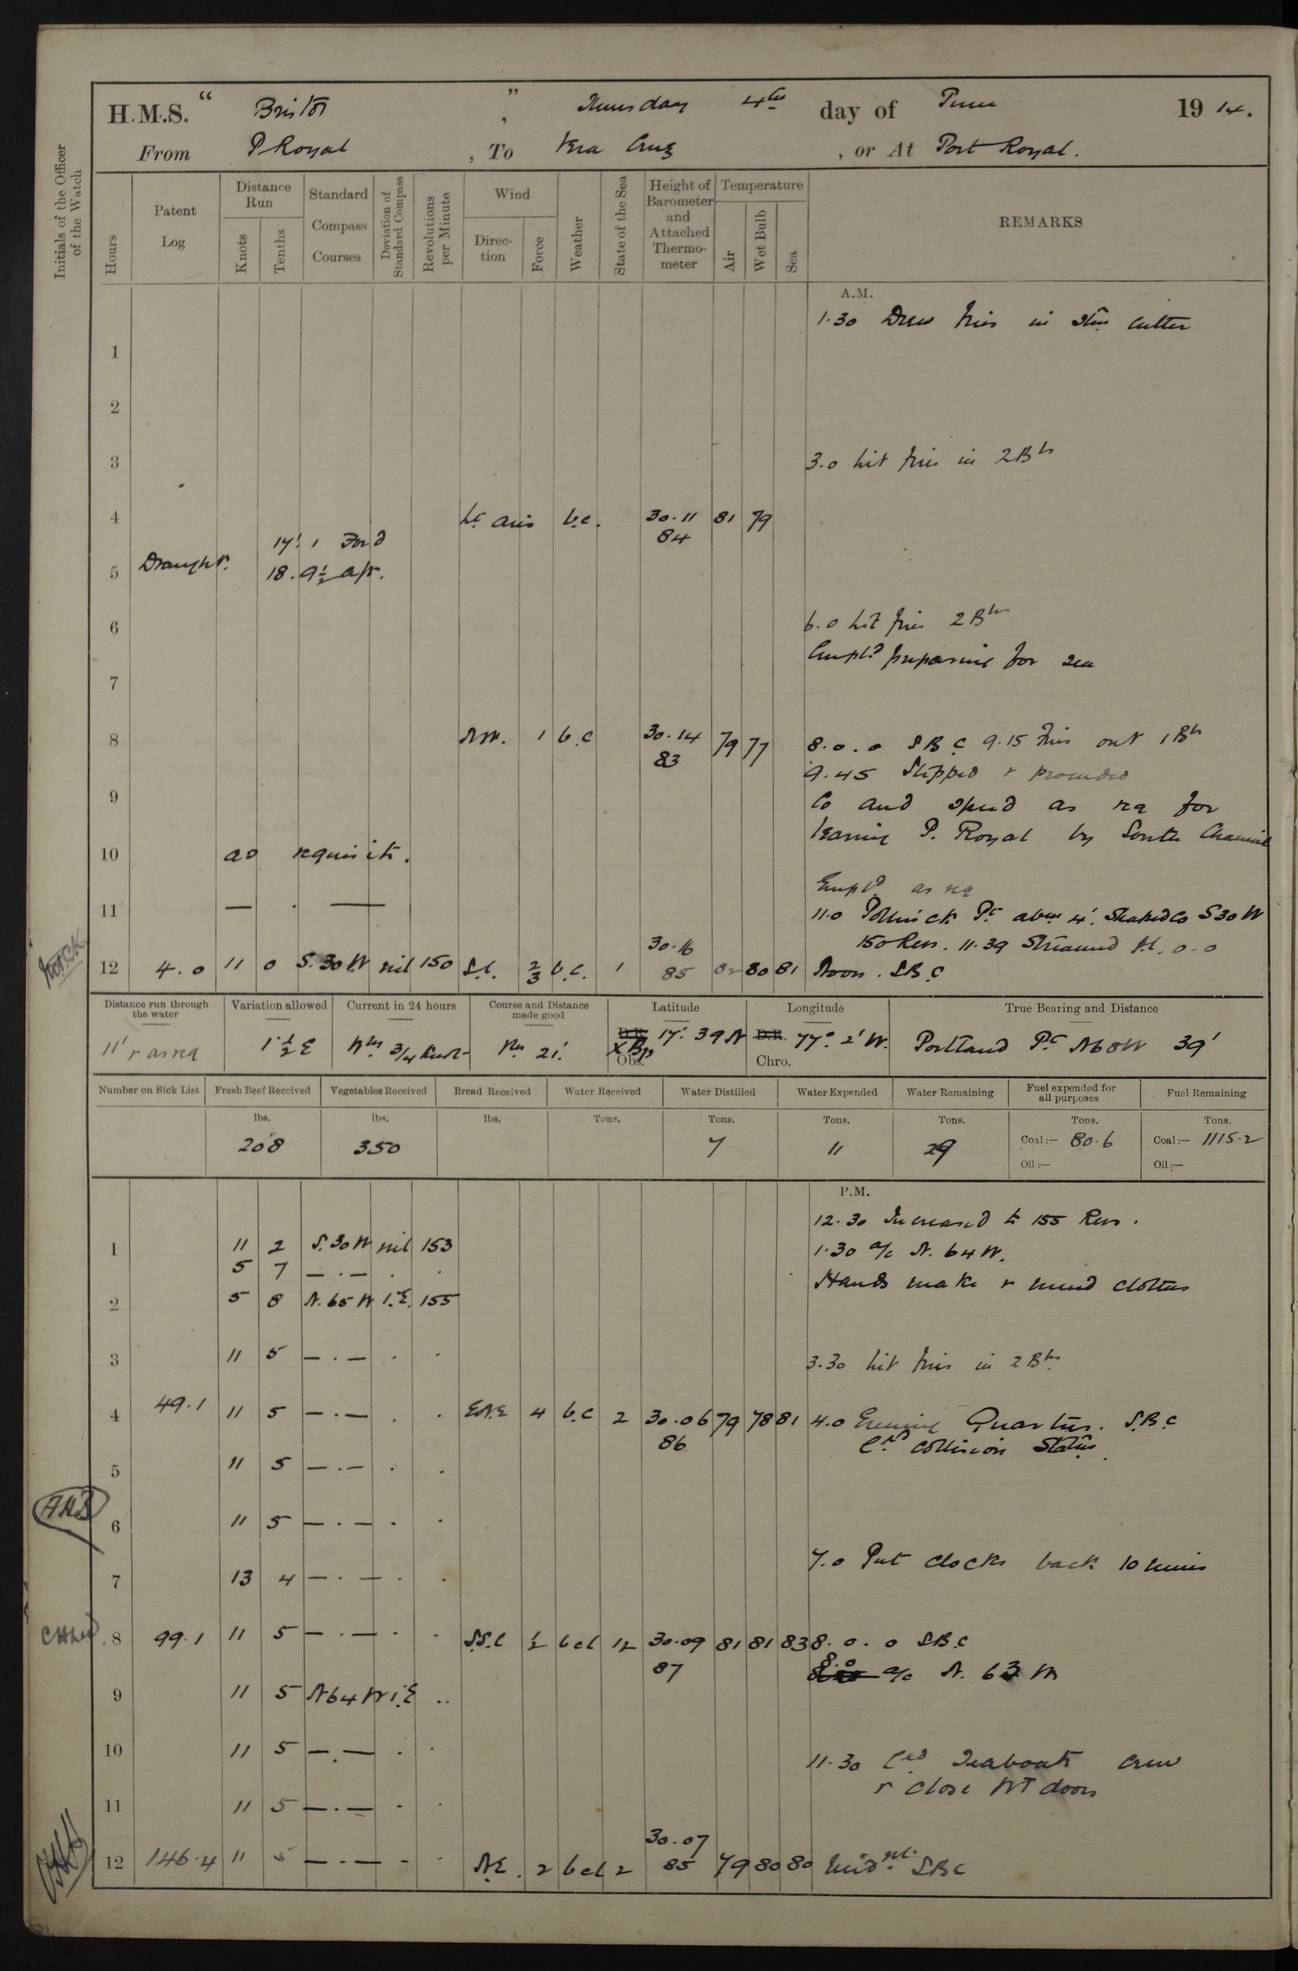 H.M.S. " Bristol " , Thursday 4th day of June 1914.
From P Royal , To Vera Cruz , or At Port Royal.
Initials of the Officer of the Watch
Hours
Patent Log
Distance Run
Knots
Tenths
Standard Compass Courses
Deviation of Standard Compass
Revolutions per Minute
Wind
Direction
Force
Weather
State of the Sea
Height of Barometer and Attached Thermometer
Temperature
Air
Wet Bulb
Sea
REMARKS
A.M.
1.30 Drew fires in Stm Cutter
1
2
3 3.0 Lit fires in 2 Brs
4 Lt airs b.c. 30.11 81 79
84
17'. 1 Ford
5 Draught. 18. 9½ aft.
6 6.0 Lit fires 2 Brs
Empld preparing for sea
7
8 NW. 1 b.c 30.14 79 77 8.0.0 S.B.C 9.15 Fires out 1 Br
83
9.45 Slipped & proceeded
9 Co and speed as req for
leaving P. Royal by South Channel
10 as requisite.
Empld as req
11 — . — 11.0 Pt abm 4'. Shaped Co S30W
30.16 150 Revs. 11.39 Streamed P.L. 0-0
12 4.0 11 0 S.30W nil 150 S.E. 2/3 b.c. 1 85 82 80 81 Noon. S.B.C
Distance run through the water
Variation allowed
Current in 24 hours
Course and Distance made good
Latitude
Longitude
True Bearing and Distance
11' & as req 1½ E 3/4 knot 21'. D.R. X Bgs Obs. 17° 39 N D.R. Chro. 77° 2' W. Portland Pt N68W 39'
Number on Sick List
Fresh Beef Received
Vegetables Received
Bread Received
Water Received
Water Distilled
Water Expended
Water Remaining
Fuel expended for all purposes
Fuel Remaining
lbs. lbs. lbs. Tons. Tons. Tons. Tons. Tons. Tons.
208 350 7 11 29 Coal:— 80.6 Coal:— 1115.2
Oil:— Oil:—
P.M.
12.30 Increased to 155 Revs.
1 11 2 S.30W nil 153 1.30 a/c N. 64 W.
5 7 — . — . .
Hands make & mend clothes
2 5 8 N.65 W 1.E. 155
3 11 5 — . — . . 3.30 Lit fires in 2 Brs
4 49.1 11 5 — . — . . ENE 4 b.c 2 30.06 79 78 81 4.0 Evening Quarters. S.B.C
86 Exd Collision Statns.
5 11 5 — . — . .
AHB
6 11 5 — . — . .
7.0 Put clocks back 10 mins
7 13 4 — . — . .
8 99.1 11 5 — . — . . S.S.E 1/2 bcl 12 30.09 81 81 83 8.0.0 S.B.C
87
8.0 a/c N. 63 W
9 11 5 N64 W 1.E ..
10 11 5 — . — . .
11.30 Exd Seaboats crew
& close WT doors
11 11 5 — . — . .
30.07
12 146.4 11 5 — . — . . N.E. 2 bcl 2 85 79 80 80 Midnt. S.B.C